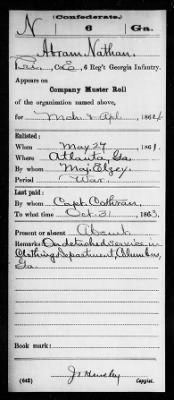 (Confederate.)
N 6 Ga.
Abram Nathan
Co. E, 6 Reg't Georgia Infantry.
Appears on
Company Muster Roll
of the organization named above,
for Mch & Apl, 1864
Enlisted:
When May 27, 1861.
Where Atlanta, Ga.
By whom Maj. Elzey
Period War.
Last paid:
By whom Capt. Cothran
To what time Oct. 31, 1863.
Present or absent Absent
Remarks On detached service in
Clothing Department, Columbus,
Ga.
Book mark:
(642)
Copyist.